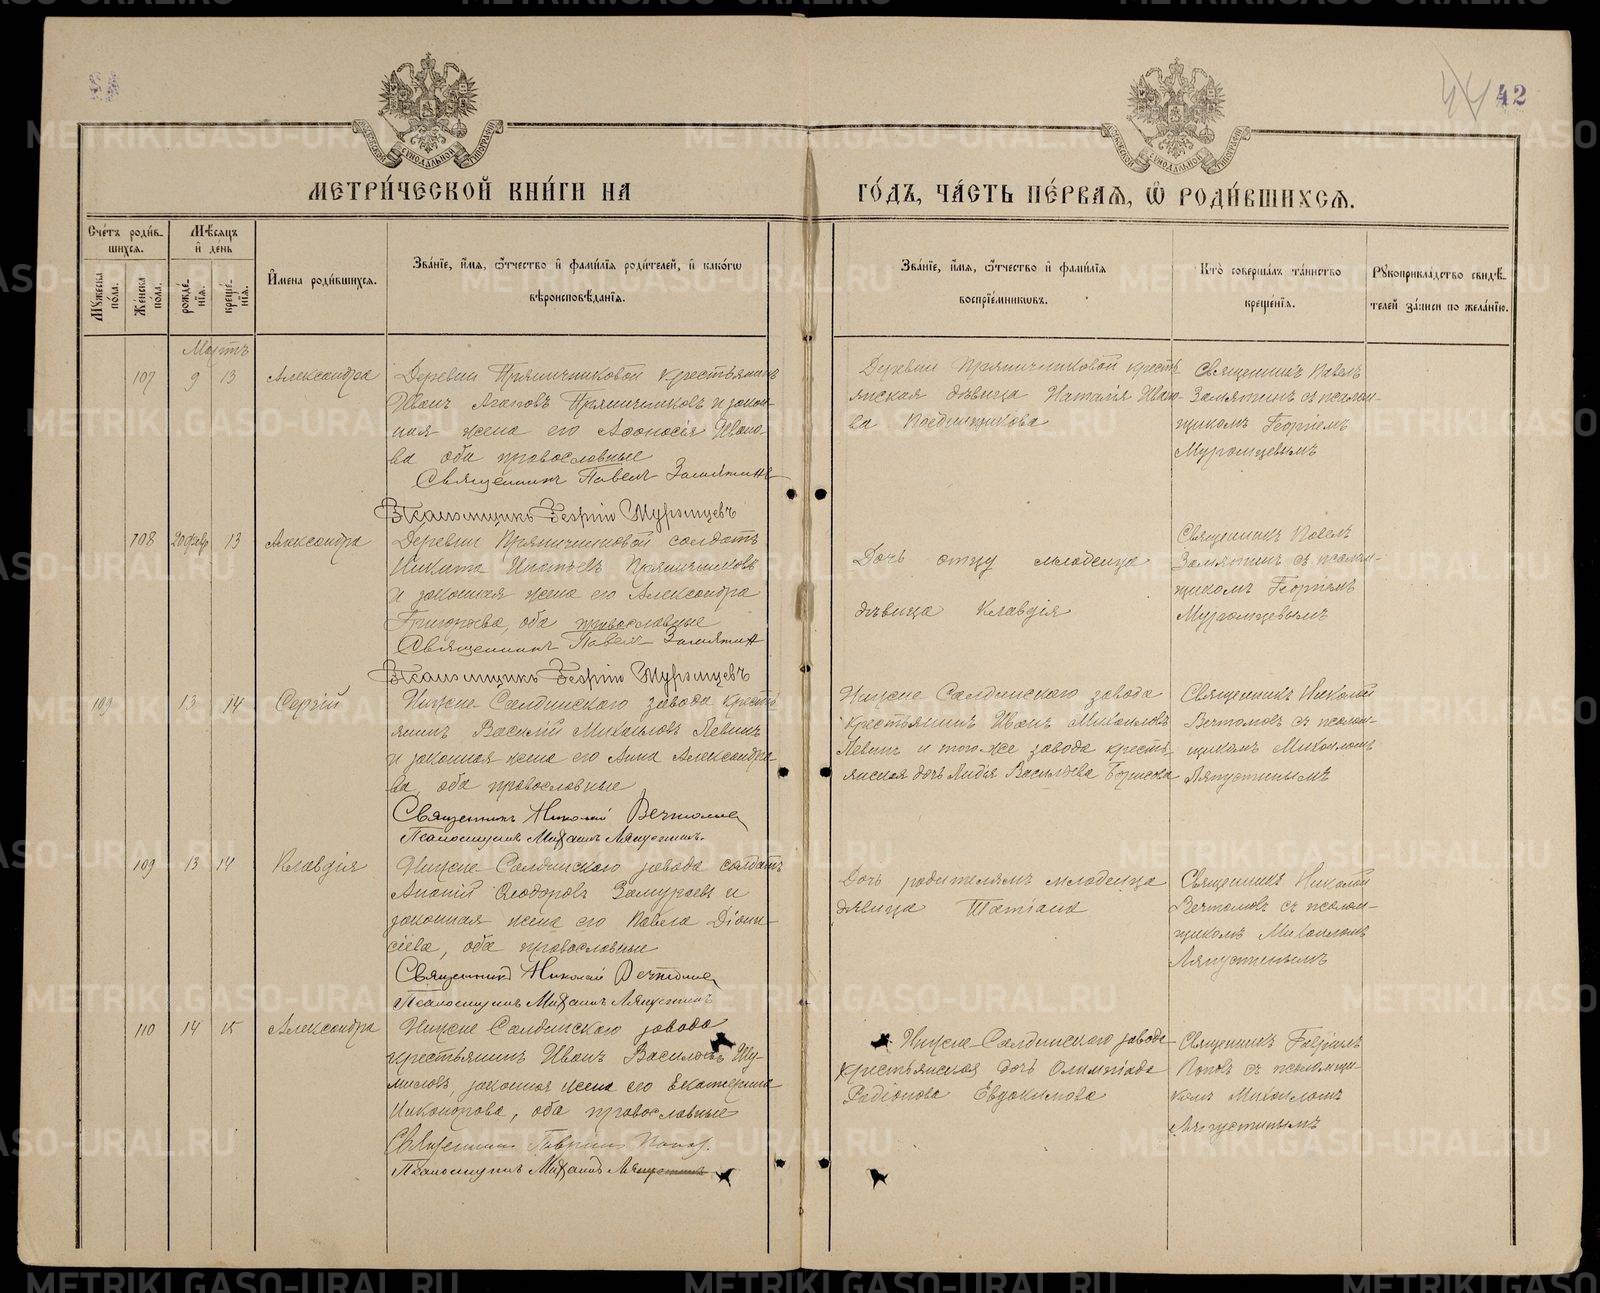 42
МОСКОВСКОЙ СѴНОДАЛЬНОЙ ТИПОГРАФІИ
МОСКОВСКОЙ СѴНОДАЛЬНОЙ ТИПОГРАФІИ
МЕТРИ́ЧЕСКОЙ КНИ́ГИ НА
ГО́ДЪ, ЧА́СТЬ ПЕ́РВАѦ, Ѡ҆ РОДИ́ВШИХСѦ.
Сче́тъ роди́в-
шихсѧ.
Мꙋжеска по́ла.
Же́нска по́ла.
Мѣ́сѧцъ
и҆ де́нь
рожде́-
нїѧ.
креще́-
нїѧ.
И҆мена роди́вшихсѧ.
Зва́нїе, и҆́мѧ, ѻ҆́тчество и҆ фами́лїѧ роди́телей, и҆ како́гѡ
вѣроисповѣ́данїѧ.
Зва́нїе, и҆́мѧ, ѻ҆́тчество и҆ фами́лїѧ
воспрїе́мникѡвъ.
Кто̀ соверша́лъ та́инство
креще́нїѧ.
Рꙋкоприкла́дство свидѣ́-
телей за́писи по жела́нїю.
Мартъ
107
9
13
Александра
Деревни Пряничниковой крестьянинъ
Иванъ Агаповъ Пряничниковъ и закон-
ная жена его Афонасія Ивано-
ва оба православные
Священникъ Павелъ Замятинъ
Псаломщикъ Георгій Муромцевъ
Деревни Пряничниковой кресть-
янская дѣвица Наталія Ивано-
ва
Священникъ Павелъ
Замятинъ съ псалом-
щикомъ Георгіемъ
Муромцевымъ
108
20 февр
13
Александра
Деревни Пряничниковой солдатъ
Никита Игнатьевъ Пряничниковъ
и законная жена его Александра
Григорьева, оба православные
Священникъ Павелъ Замятин
Псаломщикъ Георгій Муромцевъ
Дочь отцу младенца
дѣвица Клавдія
Священникъ Павелъ
Замятинъ съ псалом-
щикомъ Георгіемъ
Муромцевымъ
109
13
14
Сергій
Нижне-Салдинскаго завода кресть-
янинъ Василій Михаиловъ Левинъ
и законная жена его Анна Александро-
ва, оба православные
Священникъ Николай
Псаломщикъ Михаилъ Ляпустинъ.
Нижне Салдинскаго завода
крестьянинъ Иванъ Михаиловъ
Левинъ и того же завода кресть-
янская дочь Лидія Васильева Борисова
Священникъ Николай
съ псалом-
щикомъ Михаиломъ
Ляпустинымъ
109
13
14
Клавдія
Нижне-Салдинскаго завода солдатъ
Ананій Ѳеодоровъ Замураевъ и
законная жена его Павла Діони-
сіева, оба православные
Священникъ Николай
Псаломщикъ Михаилъ Ляпустинъ
Дочь родителямъ младенца
дѣвица Татіана
Священникъ Николай
съ псалом-
щикомъ Михаиломъ
Ляпустинымъ
110
14
15
Александра
Нижне-Салдинскаго завода
крестьянинъ Иванъ Васильевъ Шу-
миловъ, законная жена его Екатерина
Никонорова, оба православные
Священникъ Гавріилъ Поповъ.
Псаломщикъ Михаилъ Ляпустинъ
Нижне-Салдинскаго завода
крестьянская дочь Олимпіада
Родіонова Евдокимова
Священникъ Гавріилъ
Поповъ съ псаломщи-
комъ Михаиломъ
Ляпустинымъ
METRIKI.GASO-URAL.RU